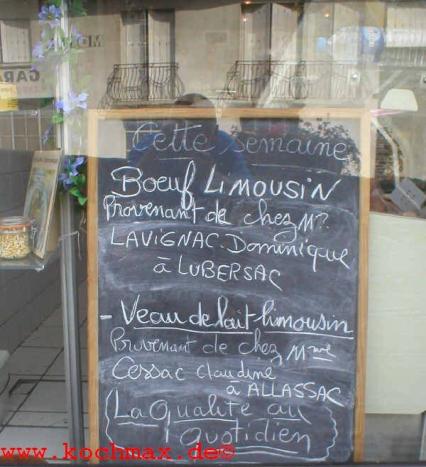 Cette semaine
Boeuf LIMOUSIN
Provenant de chez Mr
LAVIGNAC Dominique
à LUBERSAC
- Veau de lait limousin
Provenant de chez Mme
Cessac claudine
à ALLASSAC
La Qualité au
quotidien
www.kochmax.de©